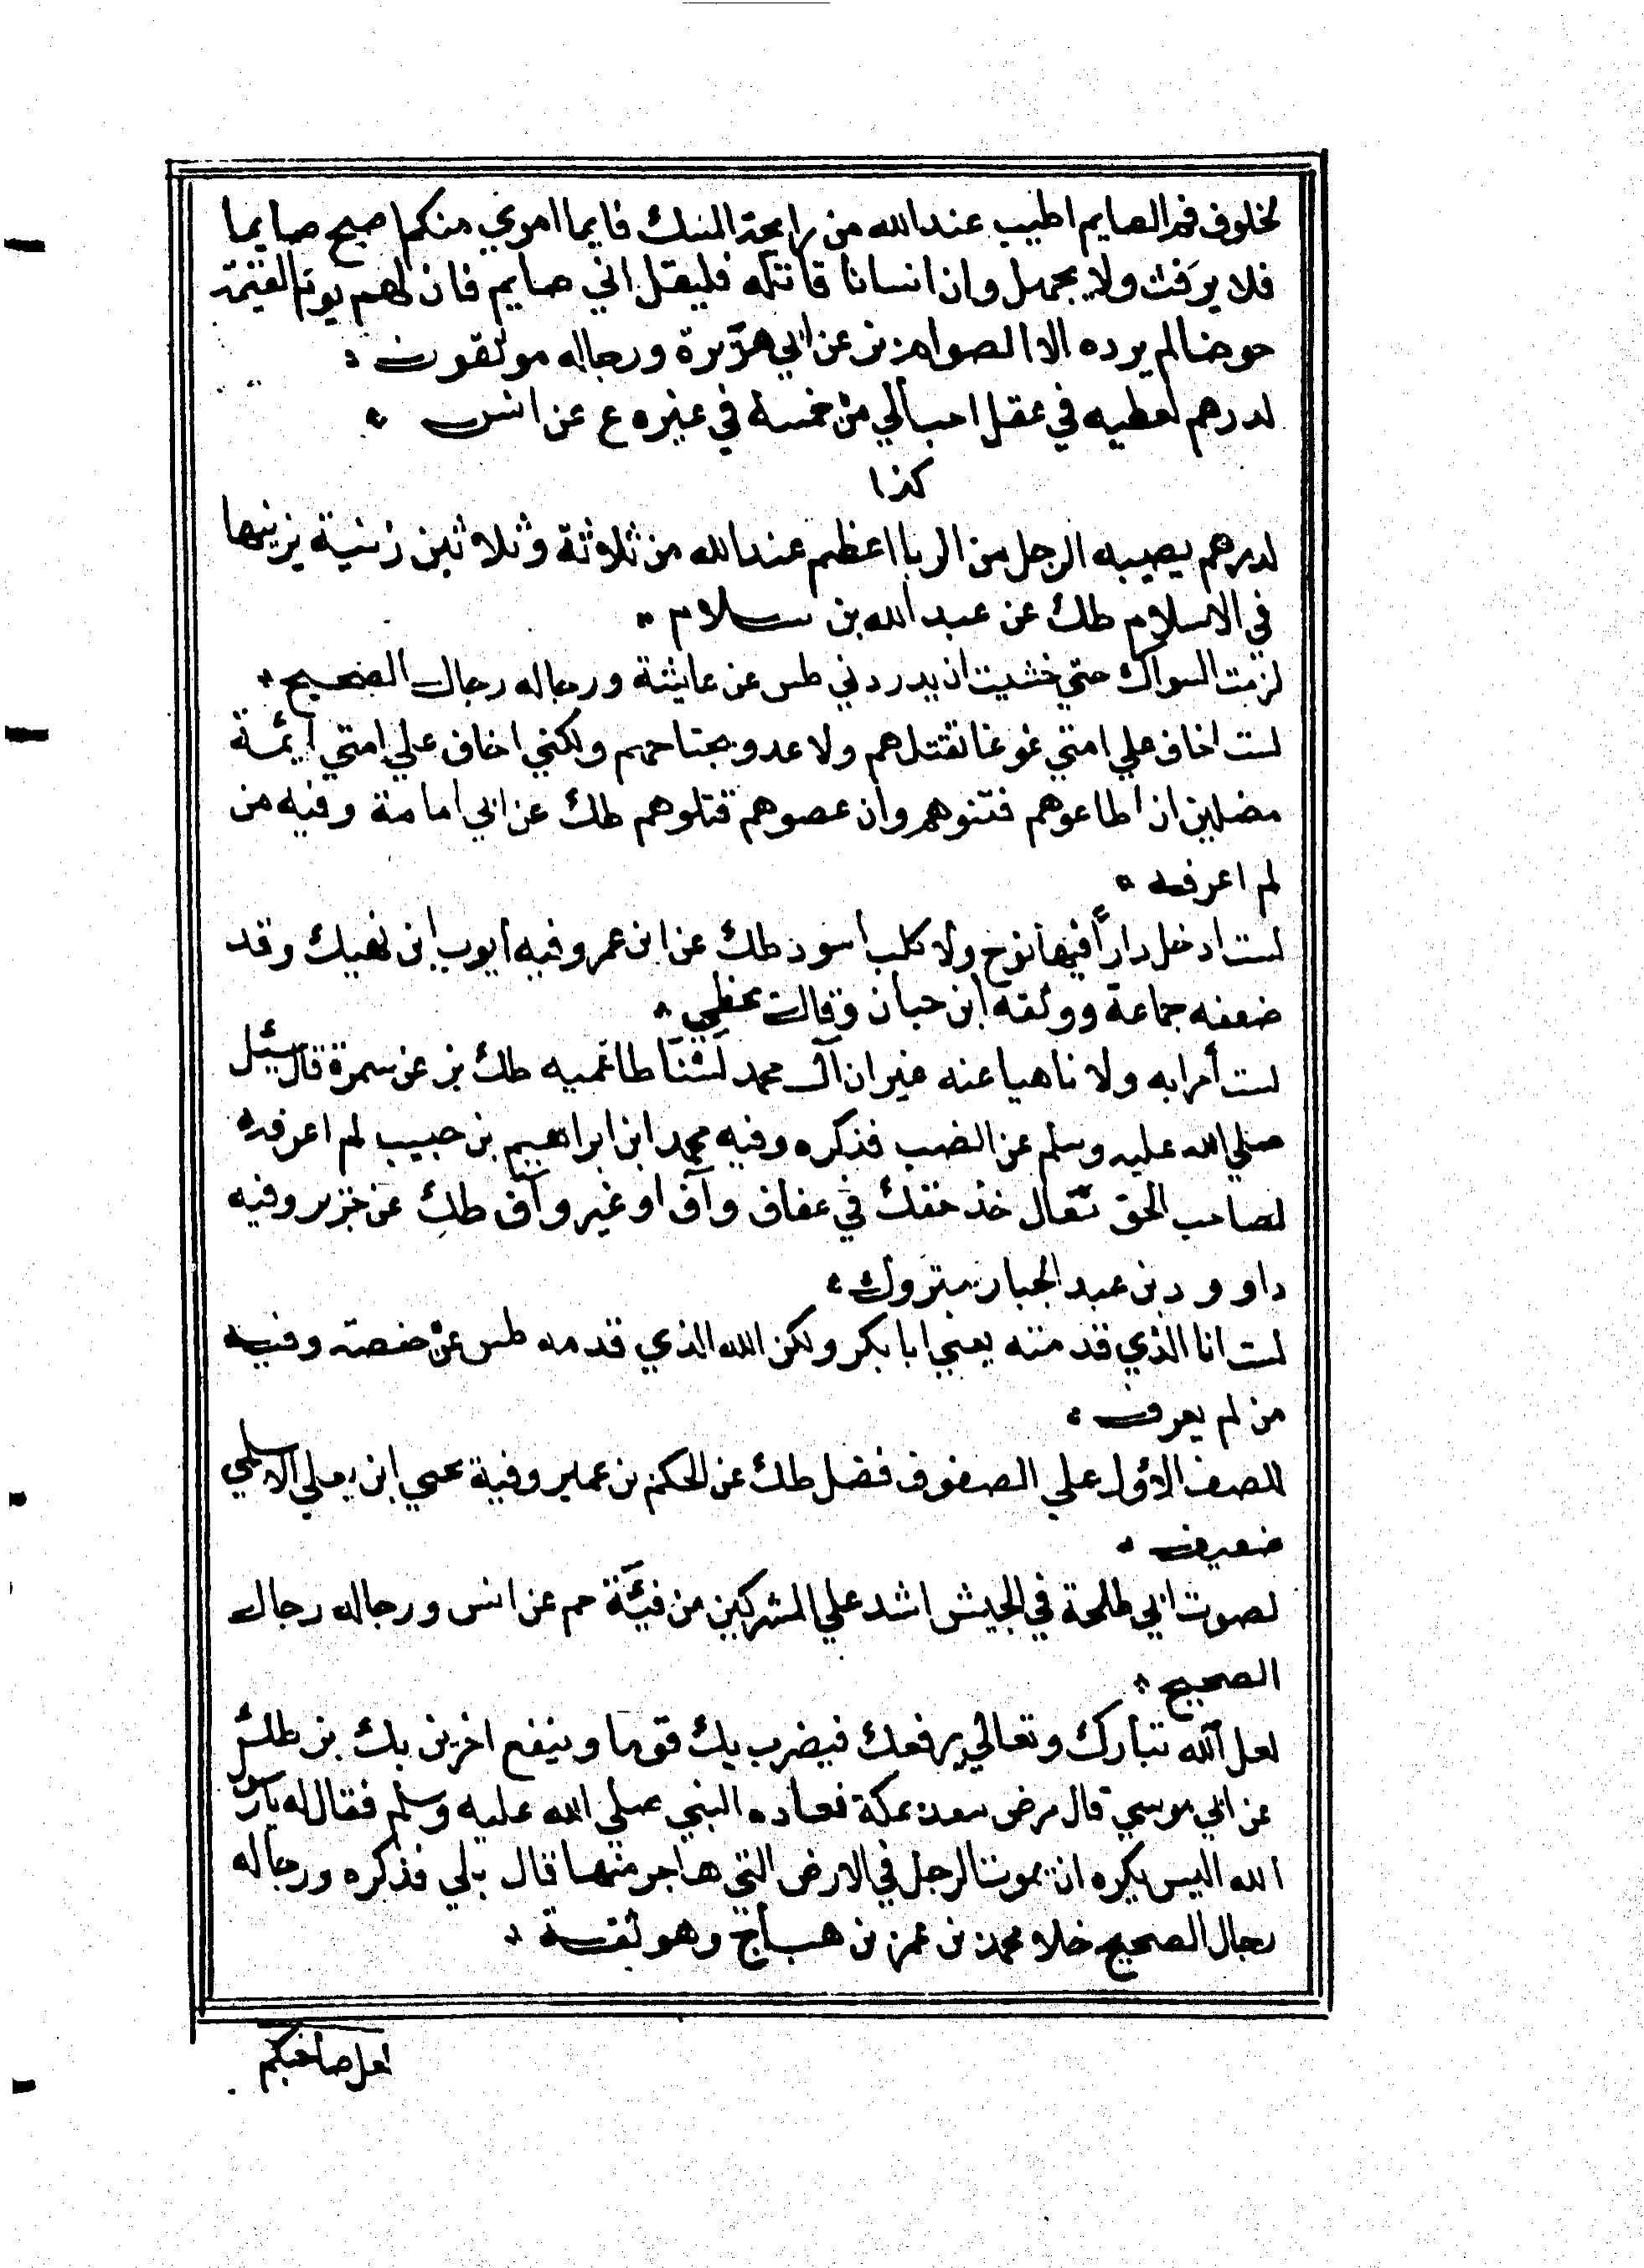 لخلوف فم الصايم اطيب عند الله من رايحة المسك فايما امري منكم اصبح صايما
فلا يرفث ولا يجهل وان انسانا قاتله فليقل اني صايم فان لهم يوم القيمة
حوضا لم يرده الا الصوام بز عن ابي هريرة ورجاله موثقون
لدرهم اعطيه في عقل احب الي من خمسة في غيره ع عن انس
كذا
لدرهم يصيبه الرجل من الربا اعظم عند الله من ثلاثة وثلاثين زنية يزنيها
في الاسلام طك عن عبد الله بن سلام
لزمت السواك حتي خشيت ان يدردني طس عن عايشة ورجاله رجال الصحيح
لست اخاف علي امتي غوغا تقتلهم ولا عدو يجتاحهم ولكني اخاف علي امتي ايمة
مضلين ان اطاعوهم فتنوهم وان عصوهم قتلوهم طك عن ابي امامة وفيه من
لم اعرفه
لست ادخل دارا فيها نوح ولا كلب اسود طك عن ابن عمر وفيه ايوب ابن نهيك وقد
ضعفه جماعة ووثقه ابن حبان وقال يخطي
لست أمرا به ولا ناهيا عنه غير ان آل محمد لسنا طاعميه طك بز عن سمرة قال سيل
صلي الله عليه وسلم عن الضب فذكره وفيه محمد ابن ابراهيم بن حبيب لم اعرفه
لصاحب الحق تعال خذ حقك في عفاف واف او غير واف طك عن جرير وفيه
داوود بن عبد الجبار متروك
لست انا الذي قدمته يعني ابا بكر ولكن الله الذي قدمه طس عن حفصة وفيه
من لم يعرف
للصف الاول علي الصفوف فضل طك عن الحكم بن عمير وفية يحيي ابن يعلي الاسلمي
ضعيف
لصوت ابي طلحة في الجيش اشد علي المشركين من فئة حم عن انس ورجاله رجال
الصحيح
لعل الله تبارك وتعالي يرفعك فيضرب بك قوما وينفع اخرين بك بز طك
عن ابي موسي قال مرض سعد بمكة فعاده النبي صلي الله عليه وسلم فقال له يارسول
الله اليس يكره ان يموت الرجل في الارض التي هاجر منها قال بلي فذكره ورجاله
رجال الصحيح خلا محمد بن عمر بن هياج وهو ثقة
لعل صاحبكم